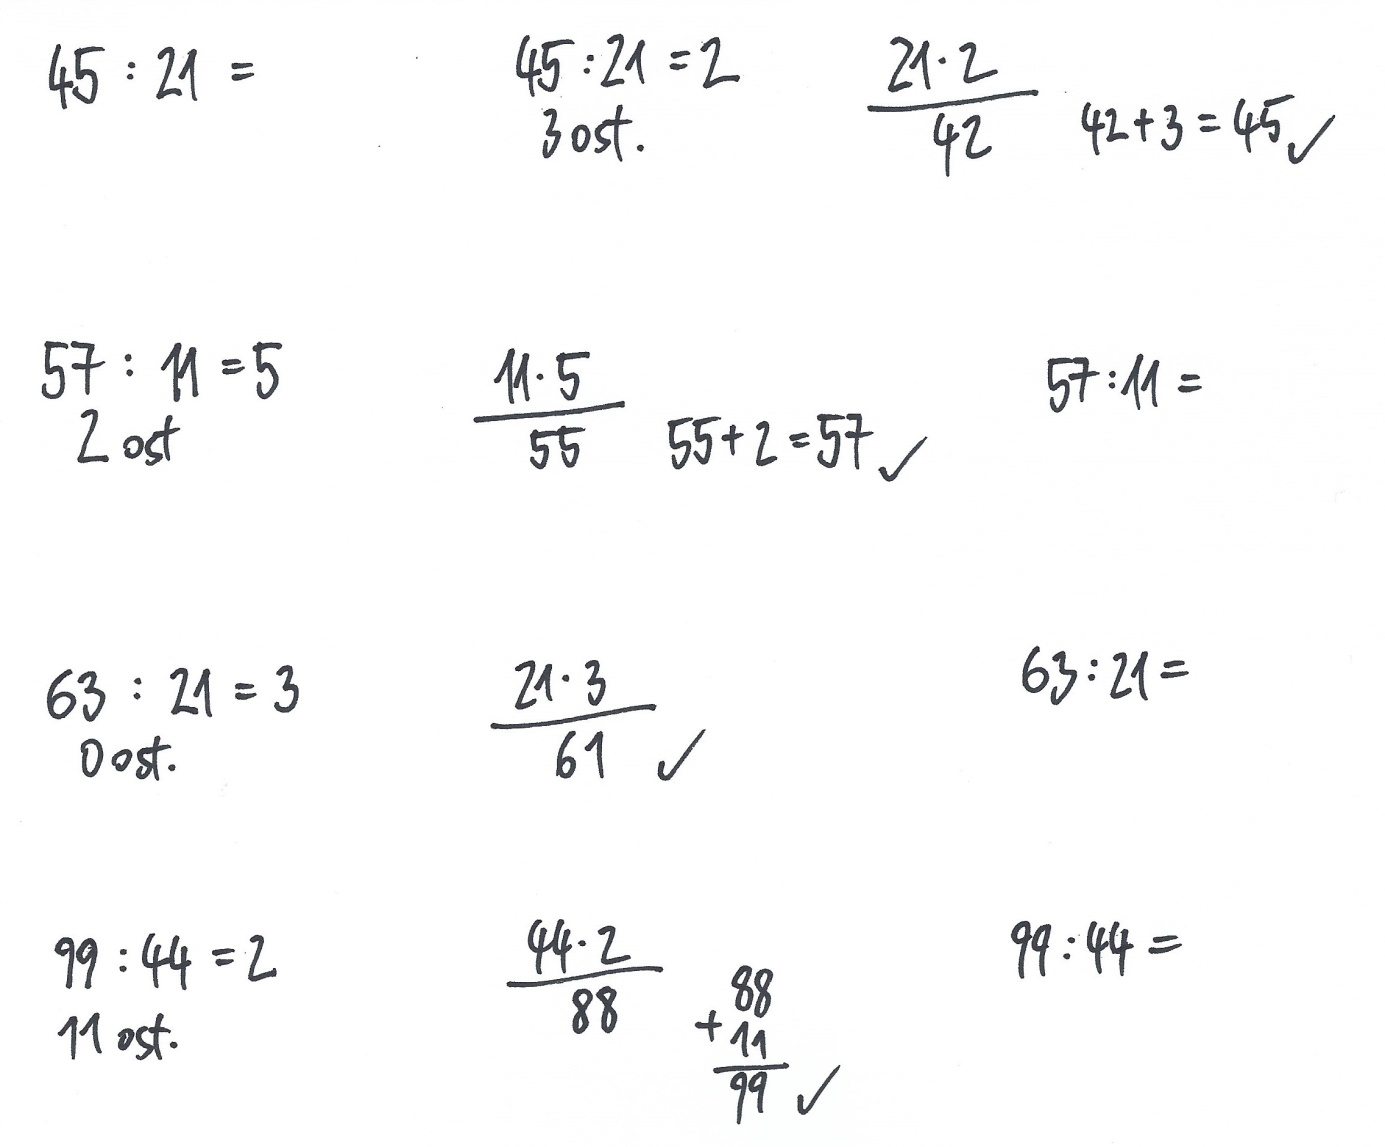 45 : 21 =
45 : 21 = 2
3 ost.
21 · 2
42
42 + 3 = 45 ✓
57 : 11 = 5
2 ost
11 · 5
55
55 + 2 = 57 ✓
57 : 11 =
63 : 21 = 3
0 ost.
21 · 3
61 ✓
63 : 21 =
99 : 44 = 2
11 ost.
44 · 2
88
88
+ 11
99 ✓
99 : 44 =